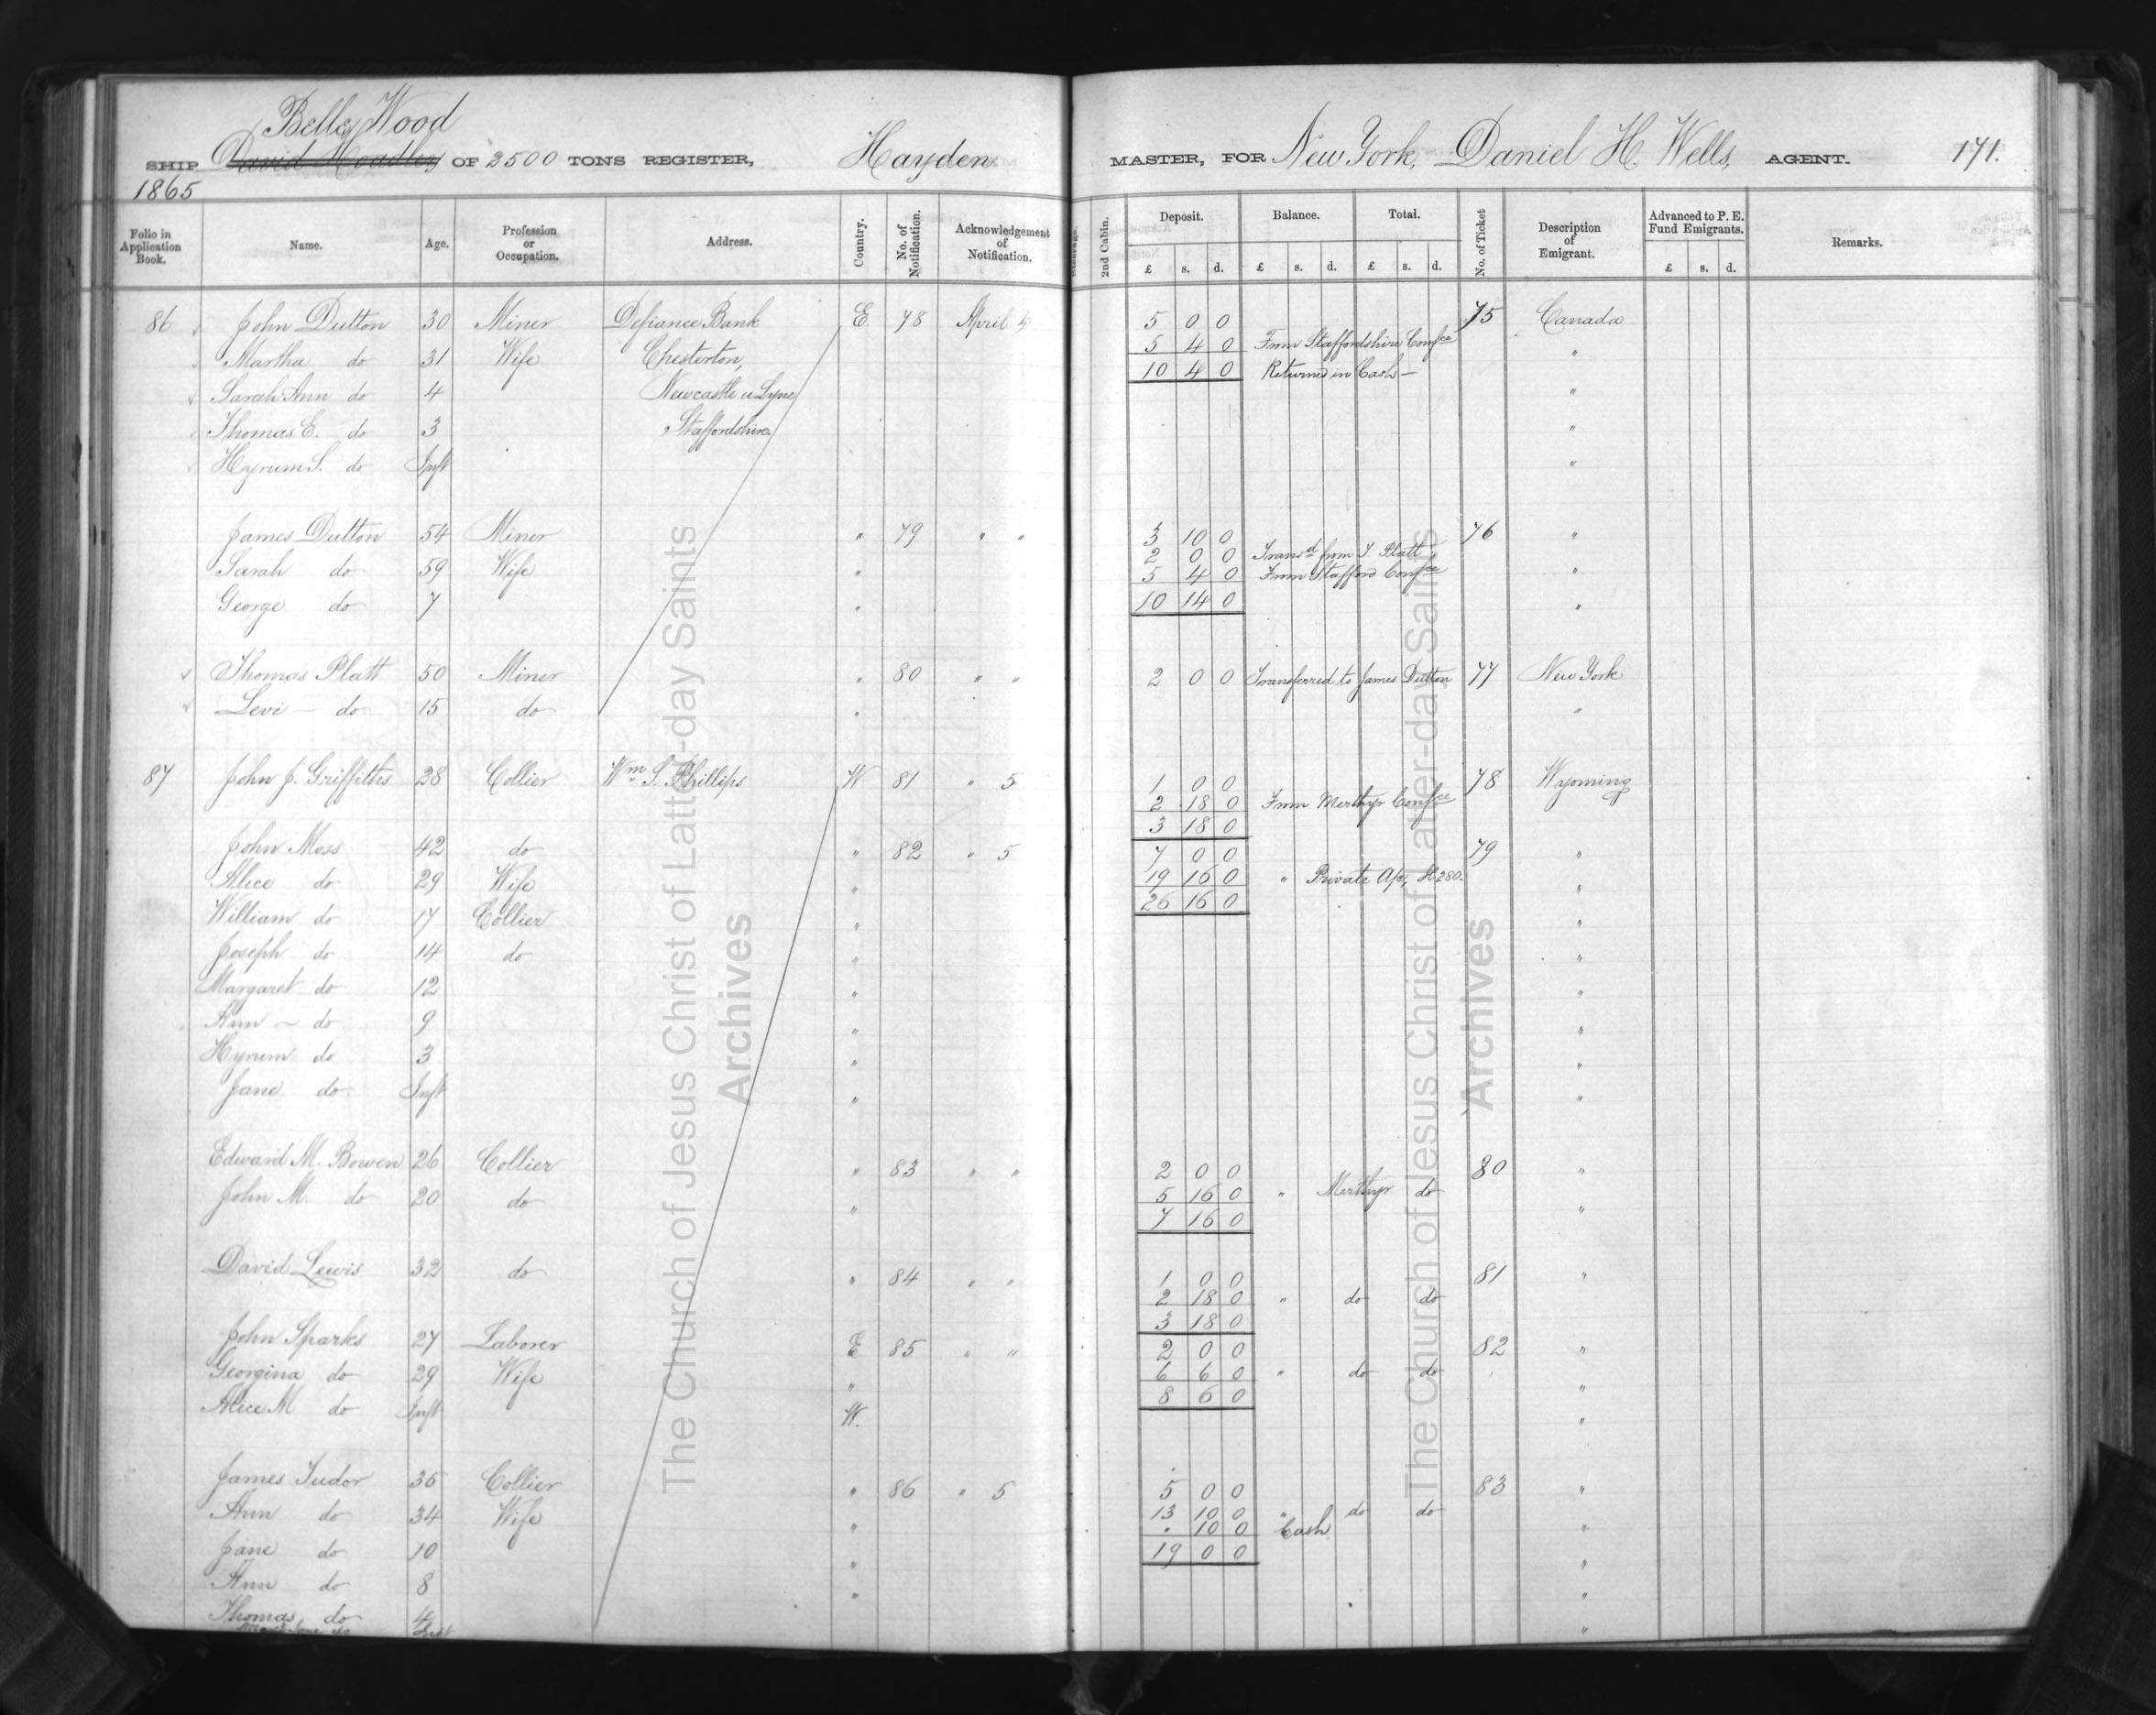 Belle Wood
SHIP David Hoadley OF 2500 TONS REGISTER, Hayden MASTER, FOR New York, Daniel H. Wells, AGENT. 171.
1865
Folio in Application Book. Name. Age. Profession or Occupation. Address. Country. No. of Notification. Acknowledgement of Notification. Steerage. 2nd Cabin. Deposit. Balance. Total. No. of Ticket Description of Emigrant. Advanced to P. E. Fund Emigrants. Remarks.
£ s. d. £ s. d. £ s. d. £ s. d.
86 John Dutton 30 Miner Defiance Bank E 78 April 4 5 0 0 75 Canada
5 4 0 From Staffordshire Confce
Martha do 31 Wife Chesterton, "
10 4 0 Returned in Cash —
Sarah Ann do 4 Newcastle u Lyne "
Thomas E. do 3 Staffordshire. "
Hyrum S. do Inft "
James Dutton 54 Miner " 79 " " 3 10 0 76 "
2 0 0 Transd from T. Platt
Sarah do 59 Wife " 5 4 0 From Stafford Confce "
George do 7 " 10 14 0 "
Thomas Platt 50 Miner " 80 " " 2 0 0 Transferred to James Dutton 77 New York
Levi — do 15 do " "
87 John J. Griffiths 28 Collier Wm S. Phillips W 81 " 5 1 0 0 78 Wyoming
2 18 0 From Merthyr Confce
3 18 0
John Moss 42 do " 82 " 5 7 0 0 79 "
Alice do 29 Wife " 19 16 0 " Private A/c, H 280. "
William do 17 Collier " 26 16 0 "
Joseph do 14 do " "
Margaret do 12 " "
Ann — do 9 " "
Hyrum do 3 " "
Jane do Inft " "
Edward M. Bowen 26 Collier " 83 " " 2 0 0 80 "
John M. do 20 do " 5 16 0 " Merthyr do "
7 16 0
David Lewis 32 do " 84 " " 1 0 0 81 "
2 18 0 " do do
3 18 0
John Sparks 27 Laborer E 85 " " 2 0 0 82 "
Georgina do 29 Wife " 6 6 0 " do do "
Alice M do Inft W. 8 6 0 "
James Tudor 35 Collier " 86 " 5 5 0 0 83 "
Ann do 34 Wife " 13 10 0 " do do "
" 10 0 Cash
Jane do 10 " 19 0 0 "
Ann do 8 " "
Thomas do 4 "
The Church of Jesus Christ of Latter-day Saints
Archives
The Church of Jesus Christ of Latter-day Saints
Archives